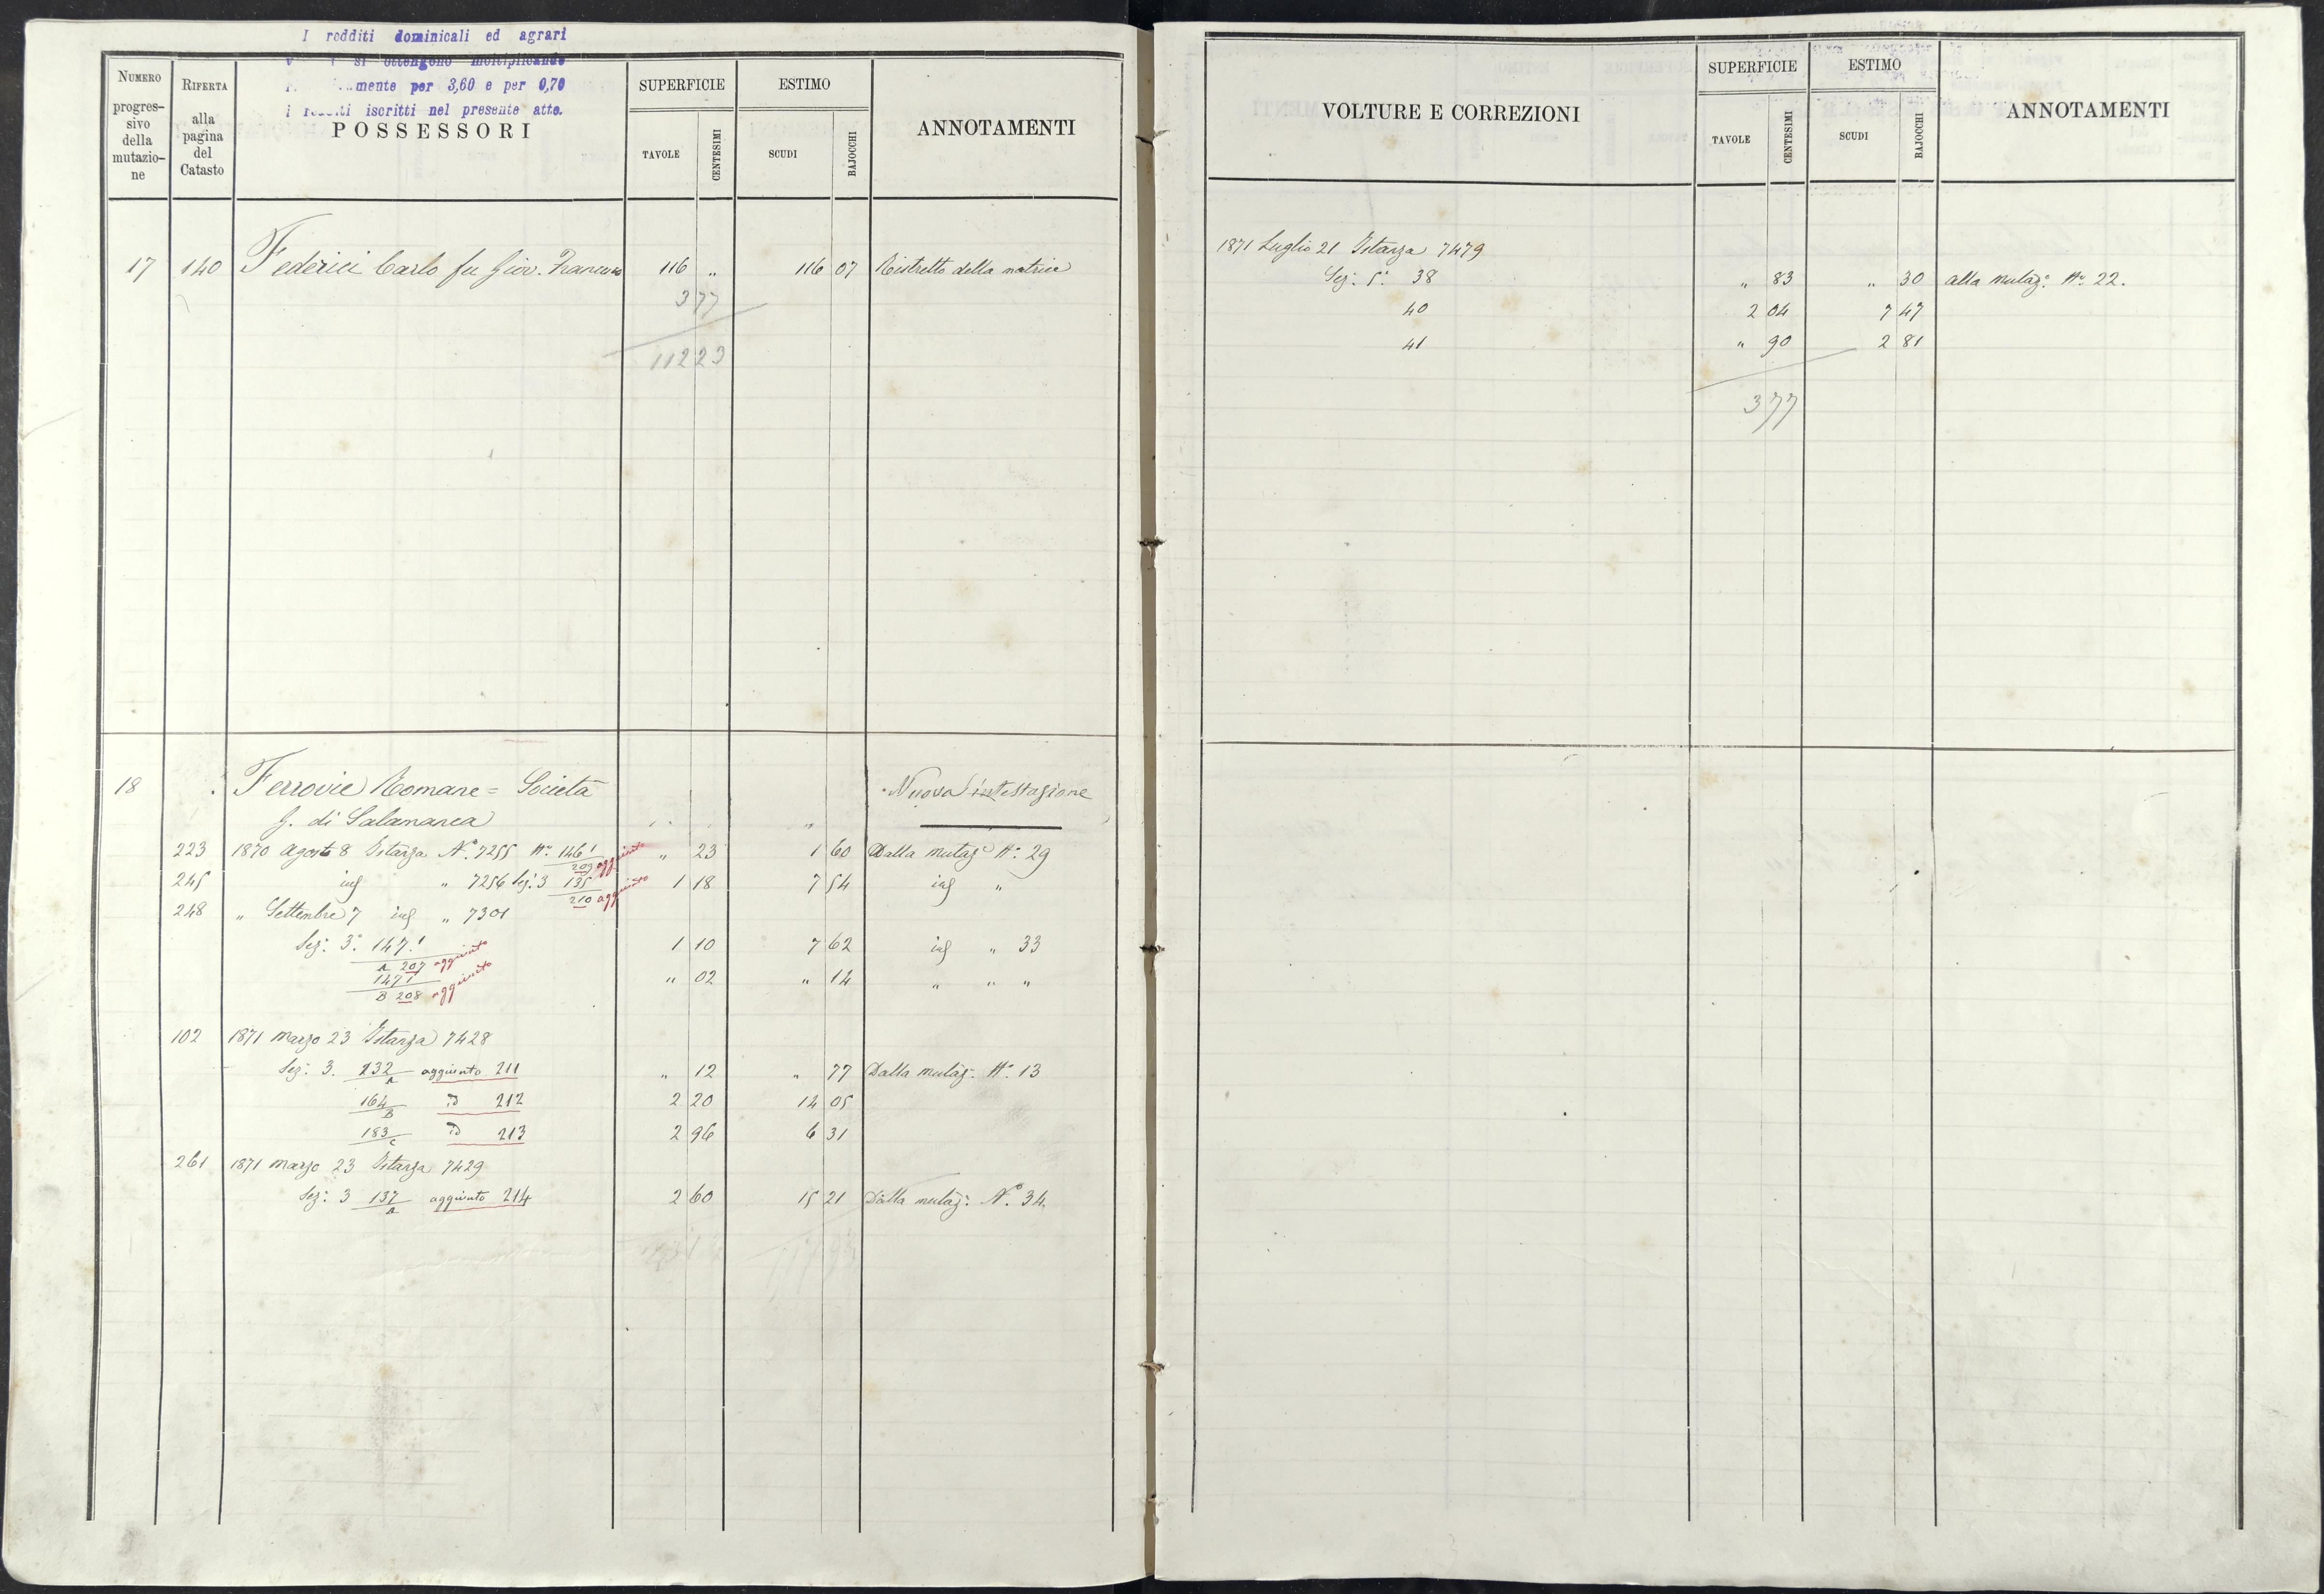 I redditi dominicali ed agrari
si ottengono moltiplicando
mente per 3,60 e per 0,70
i iscritti nel presente atto.
NUMERO progres-sivo della mutazio-ne
RIFERTA alla pagina del Catasto
POSSESSORI
SUPERFICIE
TAVOLE CENTESIMI
ESTIMO
SCUDI BAJOCCHI
ANNOTAMENTI
17 140 Federici Carlo fu Giov. Francesco 116 „ 116 07 Ristretto della matrice
3 77
112 23
18 Ferrovie Romane = Società Nuova intestazione
G. di Salamanca
223 1870 Agosto 8 Istanza N.° 7255 N.° 146 1/203 aggiunto „ 23 1 60 Dalla mutaz.e N.° 29
245 „ 7256 Sez: 3 135/210 aggiunto 1 18 7 54 „
248 „ Settembre 7 „ 7301
Sez: 3.a 147 1/A 207 aggiunto 1 10 7 62 „ 33
147 1/B 208 aggiunto „ 02 „ 14 „ „ „
102 1871 Marzo 23 Istanza 7428
Sez: 3. 132/A aggiunto 211 „ 12 „ 77 Dalla mutaz: N.° 13
164/B D 212 2 20 14 05
183/C D 213 2 96 6 31
261 1871 Marzo 23 Istanza 7429
Sez: 3 137/A aggiunto 214 2 60 15 21 Dalla mutaz: N.° 34
VOLTURE E CORREZIONI
SUPERFICIE
TAVOLE CENTESIMI
ESTIMO
SCUDI BAJOCCHI
ANNOTAMENTI
1871 Luglio 21 Istanza 7479
Sez: 5.a 38 „ 83 „ 30 alla mutaz.e N.° 22.
40 2 04 7 47
41 „ 90 2 81
3 77